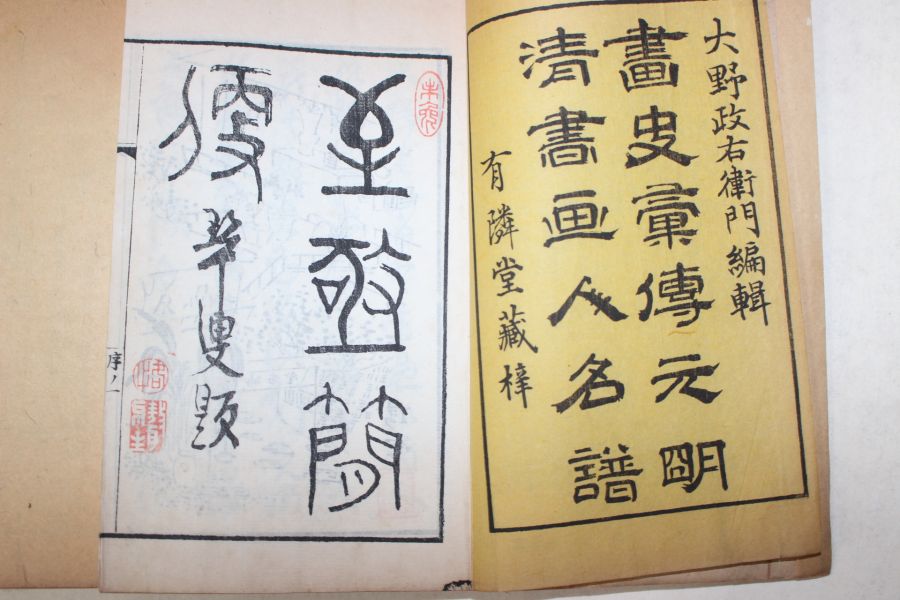 大野政右衛門編輯
畫史彙傳元朙
清書画人名譜
有隣堂藏梓
至亟簡
便
叟題
序ノ一